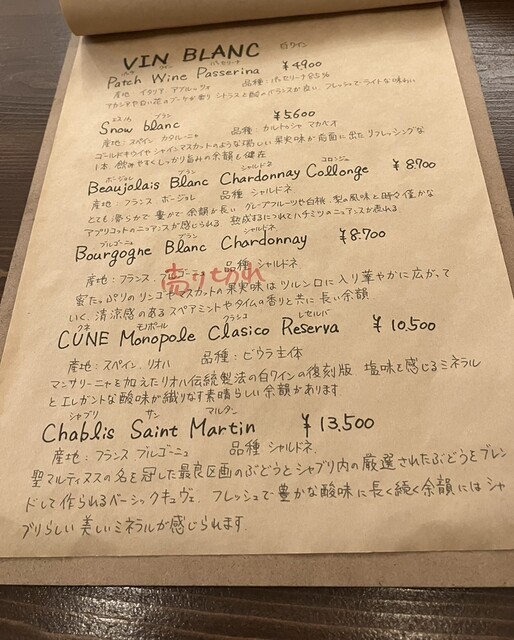 VIN BLANC 白ワイン
パッチ ワイン パッセリーナ
Patch Wine Passerina ¥4,900
産地: イタリア アブルッツォ 品種: パッセリーナ85%
マカジャや白い花のブーケが香り シトラスと酸のバランスが良い、フレッシュでライトな味わい
エスノウ ブラン
Snow blanc ¥5,600
産地: スペイン カタルーニャ 品種: カルトゥジャ マカベオ
ゴールドキウイやシャインマスカットのような瑞しい果実味が前面に出たリフレッシングな
1本、飲みやすくしっかり旨みの余韻も健在
ボージョレ ブラン シャルドネ コロンジュ
Beaujolais Blanc Chardonnay Collonge ¥8,900
産地: フランス ボージョレ 品種 シャルドネ
とても滑らかで豊かで余韻が長い グレープフルーツや白桃、梨の風味と時々僅かな
アプリコットのニュアンスが感じられる 熟成するにつれてハチミツのニュアンスが表れる
ブルゴーニュ ブラン シャルドネ
Bourgogne Blanc Chardonnay ¥8.700
産地: フランス、ブルゴーニュ 品種 シャルドネ
売り切れ
蜜たっぷりのリンゴやマスカットの果実味はツルンロに入り華やかに広がって
いく、清涼感のあるスペアミントやタイムの香りと共に長い余韻
クネ モノポール クラシコ レセルバ
CUNE Monopole Clasico Reserva ¥10,500
産地: スペイン、リオハ 品種: ビウラ主体
マンサリーニャを加えたリオハ伝統製法の白ワインの復刻版 塩味を感じるミネラル
とエレガントな酸味が織りなす素晴らしい余韻があります
シャブリ サン マルタン
Chablis Saint Martin ¥13,500
産地: フランス ブルゴーニュ 品種 シャルドネ
聖マルティヌスの名を冠した最良区画のぶどうとシャブリ内の厳選されたぶどうをブレン
ドして作られるベーシックキュヴェ、フレッシュで豊かな酸味に長く続く余韻にはシャ
ブリらしい美しいミネラルが感じられます